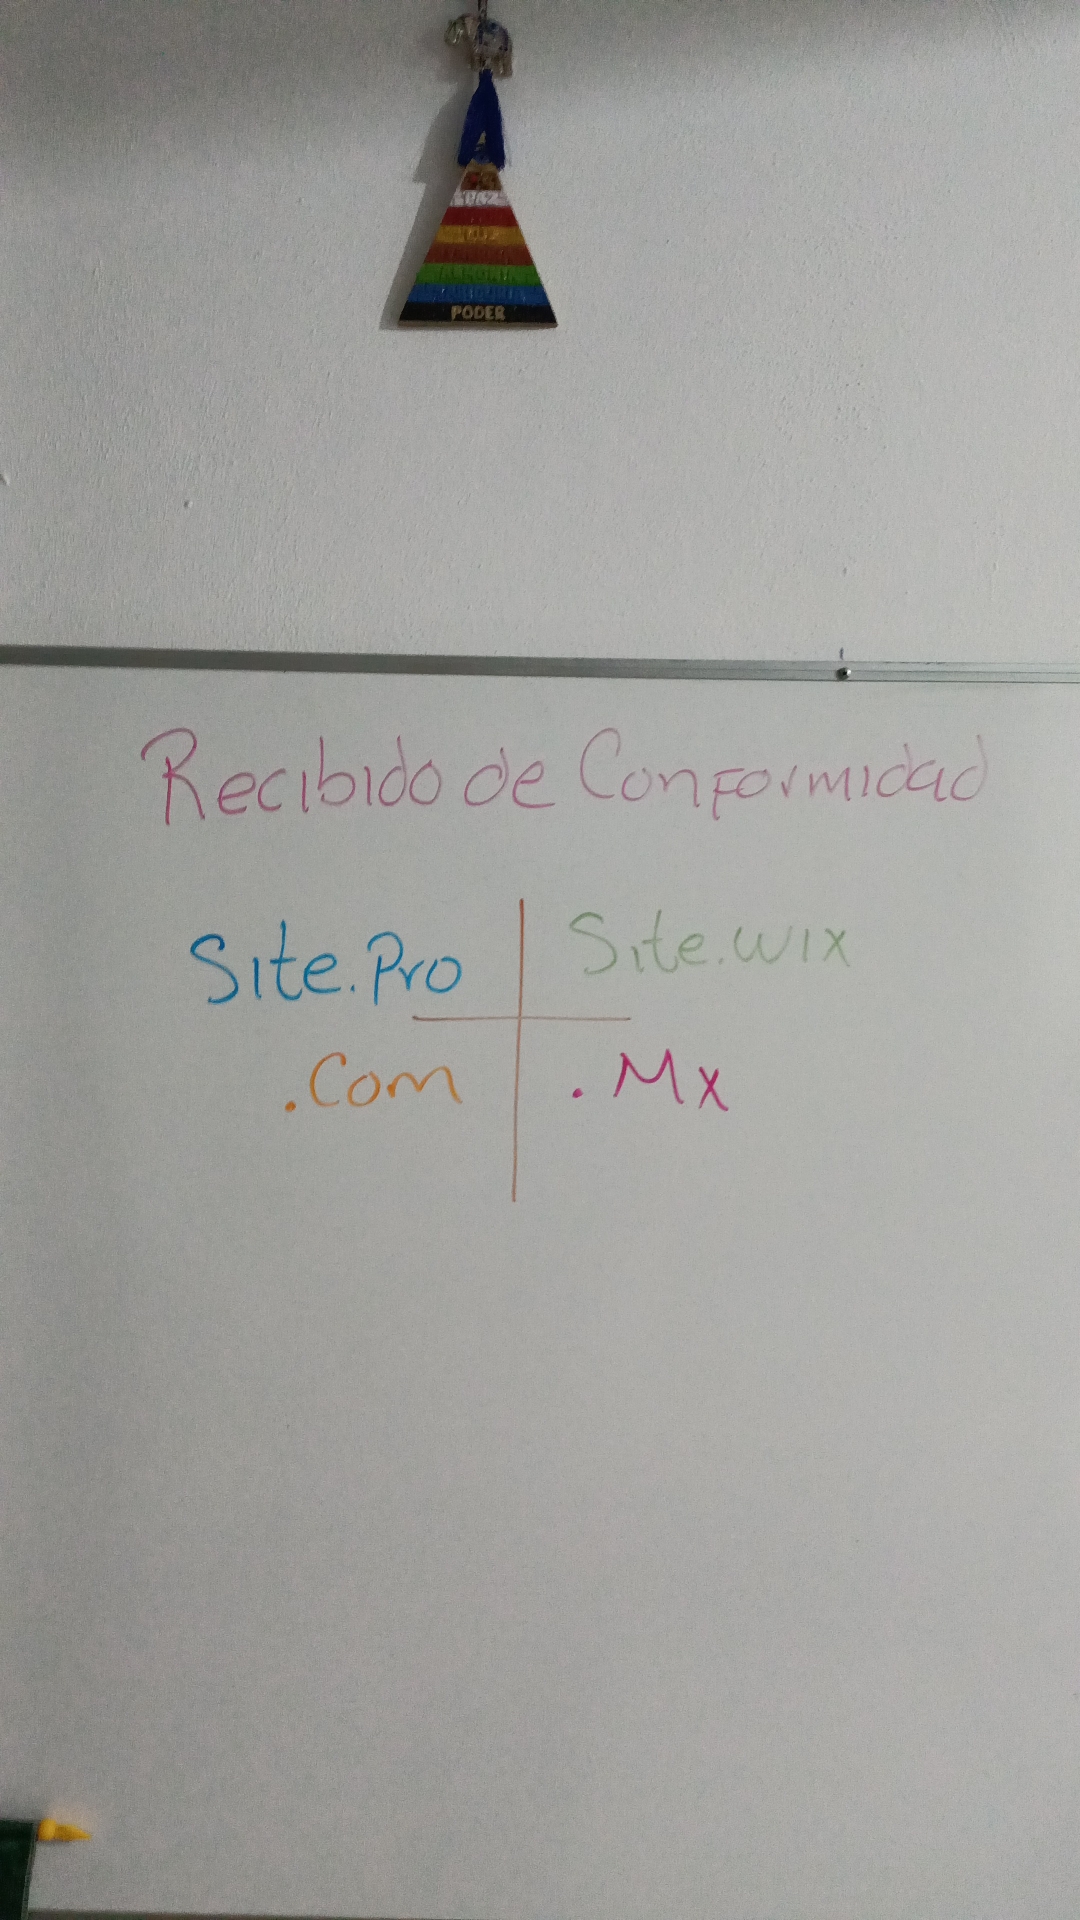 PAZ
LUZ
PODER
Recibido de Conformidad
Site.Pro Site.wix
.Com .Mx